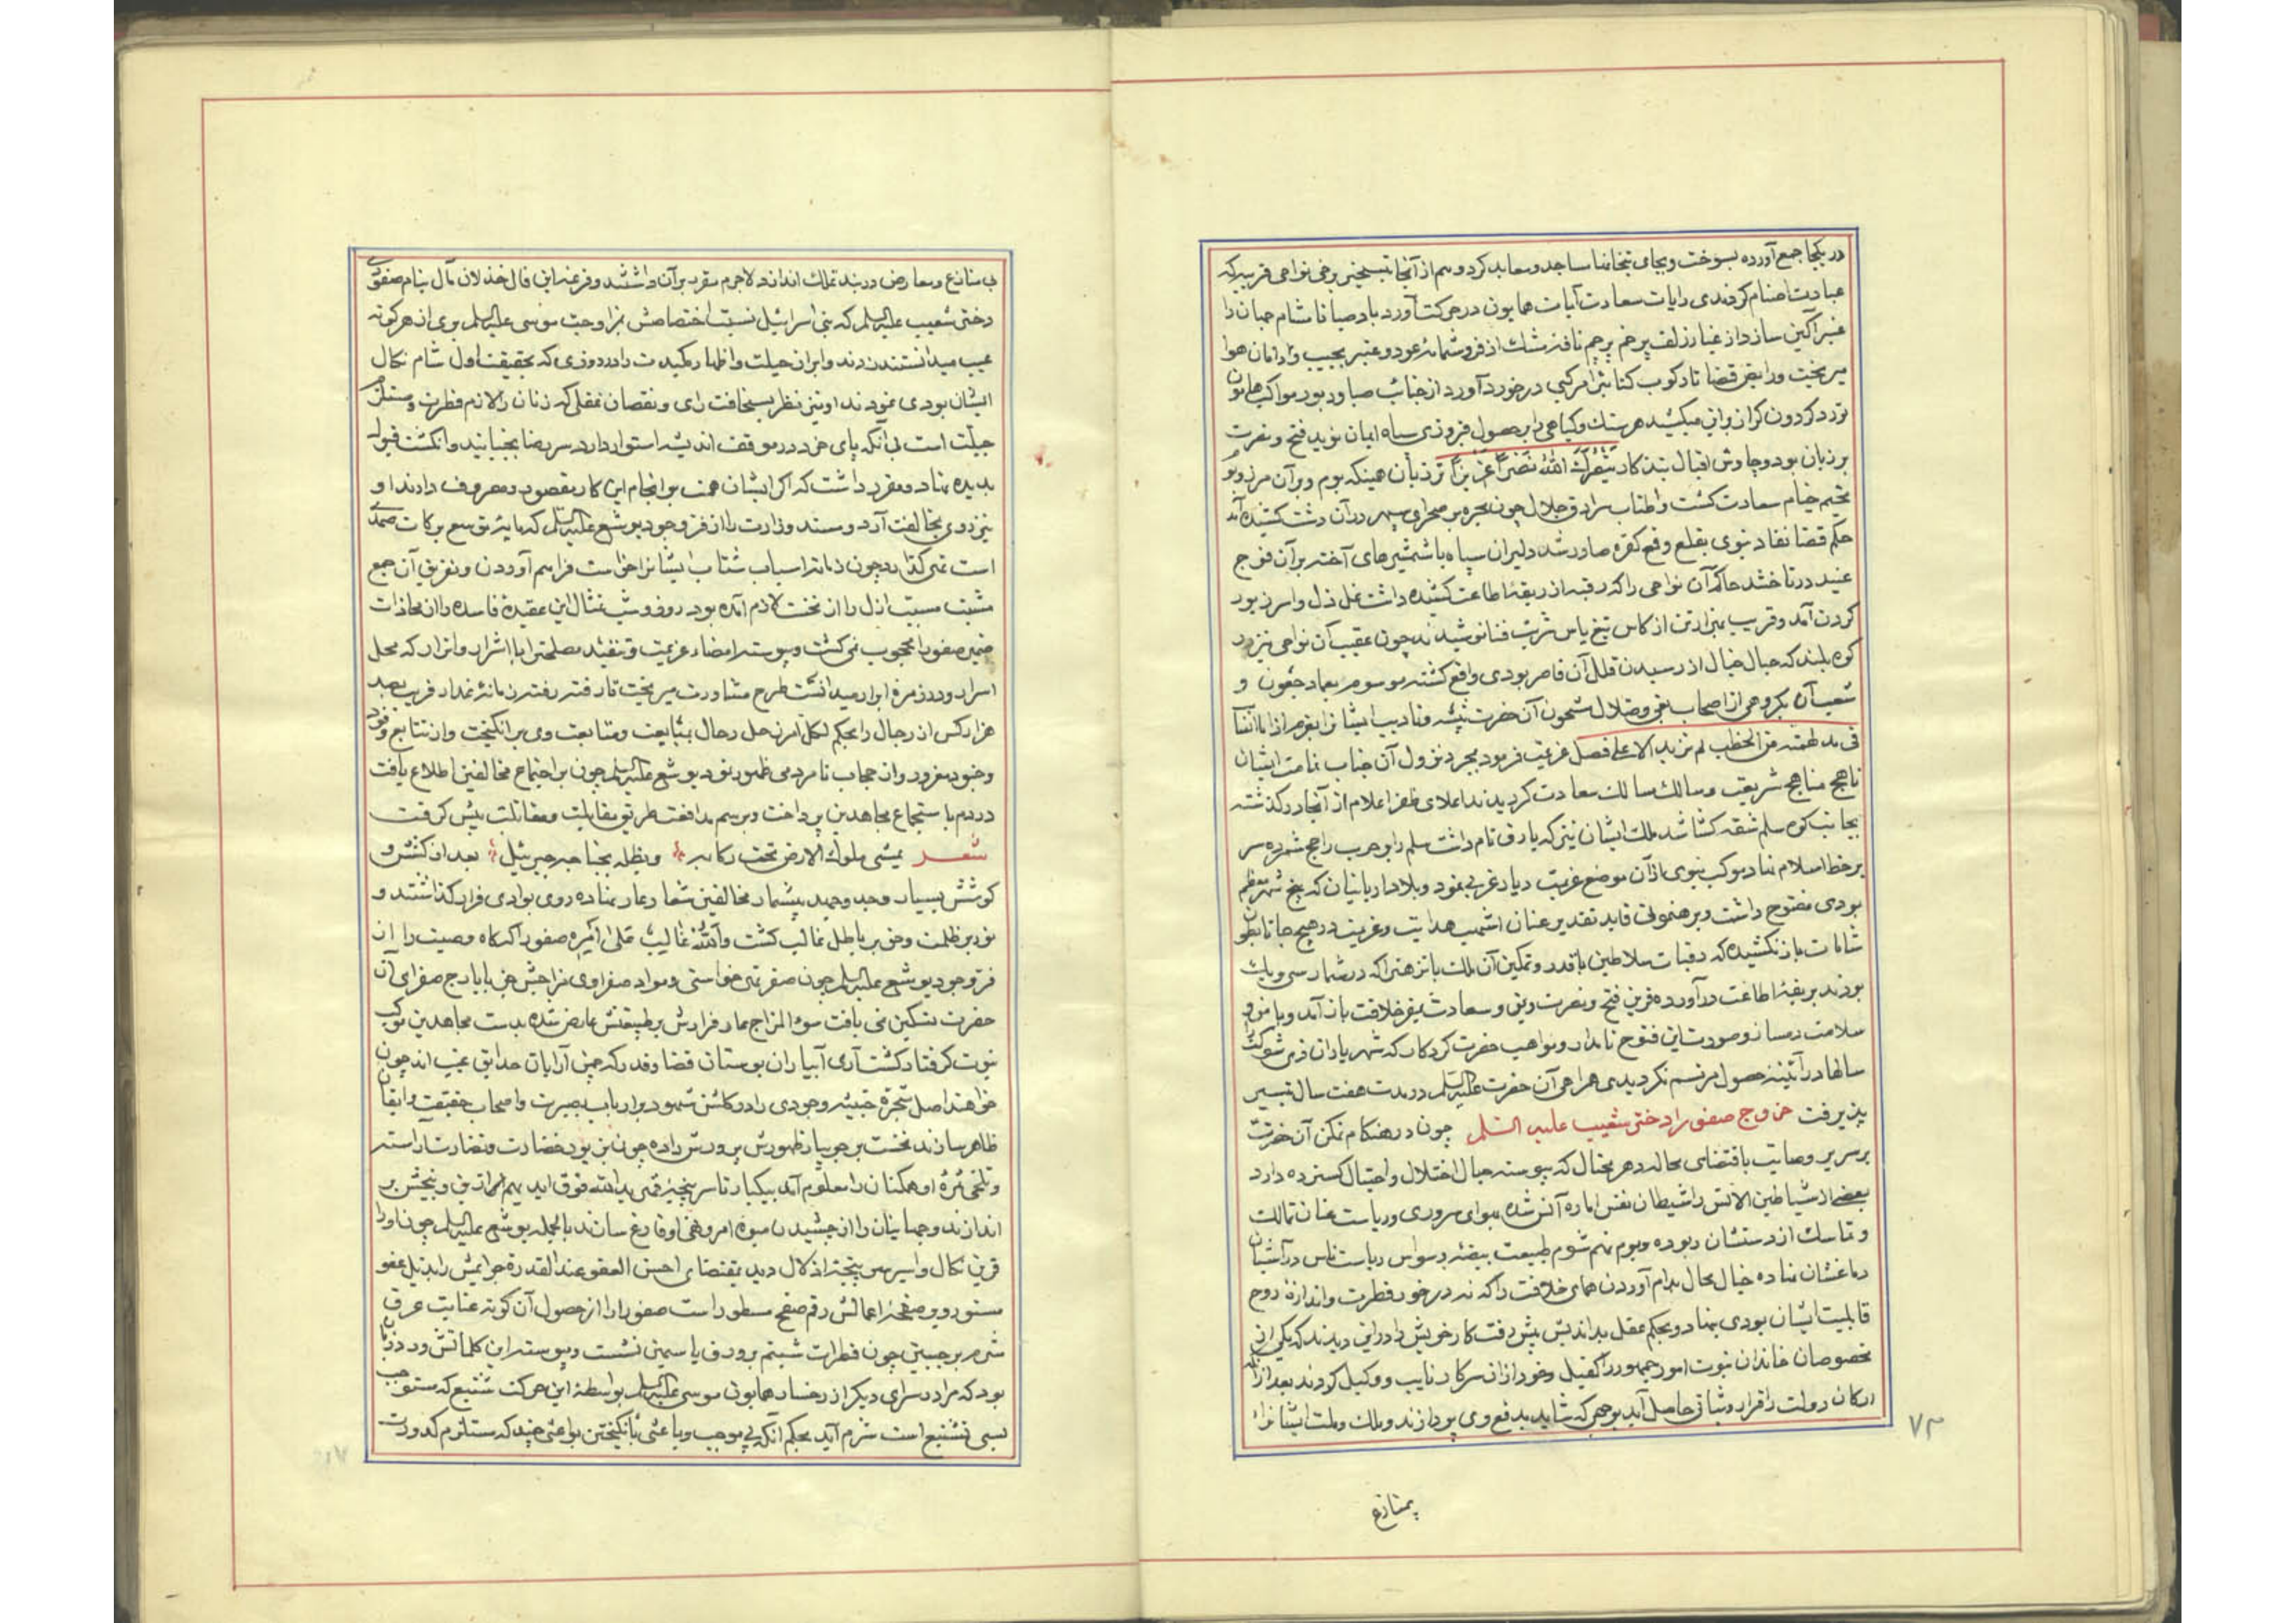 در یکجا جمع آورده بسوخت و بجای بتخانها مساجد و معابد کرد و هم از آنجا بتسخیر برخی نواحی قریبه که
عبادت اصنام کردندی رایات سعادت آیات همایون در حرکت آورد باد صبا تا مشام جهان را
عنبرآکین سازد از غبار زلف پرخم پرچم نافه مشک اذفر و شمامه عود و عنبر بجیب و دامان هوا
میریخت و رایض قضا تا رکوب کتایب را مرکبی در خورد آورد از جنایب صبا و دبور مواکب همایون
نورد کردون کران میکشید هر سنک و کیاهی را بر حصول فیروزی سپاه ایمان نوید فتح و نصرت
بر زبان بود و چاوش اقبال بتذکار ینصرک الله نصرا عزیزا تر زبان همینکه بوم و بر آن مرز و بوم
مخیم خیام سعادت کشت و اطناب سرادق جلال چون مجره بر صحرای سپهر در آن دشت کشیده آمد
حکم قضا نفاذ نبوی بقلع و قمع کفره صادر شد دلیران سپاه با شمشیرهای آخته بر آن فوج
عنید در تاختند حاکم آن نواحی را که رقبه از ربقه اطاعت کشیده داشت غل ذل و اسر زیور
کردن آمد و قریب بهزار تن از کاس تیغ یاس شربت فنا نوشیدند چون عقیب آن نواحی نیز دو
کوه بلند که حبال خیال از رسیدن قلل آن قاصر بودی واقع کشته موسوم بعماد جعون و
شعبآن بکروهی از اصحاب بغی و ضلال مشحون آن حضرت تنبیه و تادیب ایشانرا بفرم اذا ما انتنا
فی مدلهمة من الخطب لم نزیدا الا علی فصل عزیمت فرمود بمجرد نزول آن جناب تمامت ایشان
ناهج مناهج شریعت و سالک مسالک سعادت کردیدند اعلای ظفر اعلام از آنجا در کذشته
بجانب کوه سلم شقه کشا شد ملک ایشان نیز که یارق نام داشت سلم را بر حرب راجح شمرده سر
بر خط اسلام نهاد موکب نبوی از آن موضع عزیمت دیار غربی نمود و بلاد اربانیان که پنج شهر معظم
بودی مفتوح داشت و برهنمونی قاید تقدیر عنان اشهب هدایت و عزیمت در هیچ جا تا بطون
شامات باز نکشیده که رقبات سلاطین باقدر و تمکین آن ملک با نزهت را که در شمار سی و یک
بودند بربقه اطاعت در آورده قرین فتح و نصرت و یمن و سعادت بمقر خلافت باز آمد و با
سلامت دمساز و صورت این فتوح نامدار و مواهب حضرت کردکار که شهریاران ذی شوکت را
سالها در آئینه حصول مرتسم نکردیدی همراهی آن حضرت علیه السلام در مدت هفت سال تیسیر
پذیرفت خروج صفورا دختر شعیب علیه السلام چون در هنکام تمکن آن حضرت
بر سریر وصایت باقتضای محاله دهر محتال که پیوسته حبال اختلال و احتیال کسترده دارد
بعضی از شیاطین الانس را شیطان نفس اماره آنس شده بهوای سروری و ریاست عنان تمالک
و تماسک از دستشان ربوده و بوم شوم طبیعت بیضه وسواس ریاست ناس در آشیان
دماغشان نهاده خیال محال بدام آوردن همای خلافت را که نه در خور فطرت و اندازه روح
قابلیت ایشان بودی بنهاد و بحکم عقل بداندیش پیش رفت کار خویش را در این دیدند که یکی از
مخصوصان خاندان نبوت امور جمهور را کفیل و خود از آن سرکار نایب و وکیل کردند بعد از آنکه
ارکان دولت را قرار و ثباتی حاصل آید بوجهی که شاید بدفع وی پردازند و ملک و ملت ایشانرا
بمنازع
۷۳
بی منازع و معارض در بند تملک اندازند لاجرم مقرر بر آن داشتند و قرعه این فال خذلان مآل بنام صفورای
دختر شعیب علیه السلام که بنی اسرائیل نسبت اختصاصش بمزاوجت موسی علیه السلام بری از هر کونه
عیب میدانستند زدند و ابراز حیلت و اظهار مکیدت را در روزی که بحقیقت اول شام نکال
ایشان بودی نمودند او نیز نظر بسخافت رای و نقصان عقلی که زنان را لازم فطرت و مستلزم
جبلت است بی آنکه پای خرد در موقف اندیشه استوار دارد سر رضا بجنبانید و انکشت قبول
بدیده نهاد و مقرر داشت که اکر ایشان همت بر انجام این کار مقصود و مصروف دارند او
نیز روی بمخالفت آرد و مسند وزارت را از فر وجود یوشع علیه السلام که مایه توسع برکات صمدی
است تهی کذارد چون ذمانه اسباب شتاب ایشانرا خواست فراهم آوردن و تفریق آن جمع
مشیت مسبب ازل را از نخست لازم آمده بود روز و شب تمثال این عقیده فاسده را از محاذات
ضمیر صفورا محجوب نمی کشت و پیوسته امضاء عزیمت و تنفیذ مصلحتها با اشرار و اتراب که محل
اسرار و در زمره ابرار میدانست طرح مشاورت میریخت تا رفته رفته زمانه غدار قریب بصد
هزار کس از رجال را بحکم لکل امر رجال بمبایعت و متابعت وی برانکیخت و از تتابع وفود
و جنود مغرور و از حجاب نامردمی ظهور نمود یوشع علیه السلام چون بر اجتماع مخالفین اطلاع یافت
در دم باستجماع مجاهدین پرداخت و برسم مدافعت طریق مقابلت و مقاتلت پیش کرفت
شعر یمشی ملوک الارض تحت رکابه و یظله بجناحه جبریل بعد از کشش و
کوشش بسیار و جد و جهد بیشمار مخالفین شعار عار نهاده روی بوادی فرار کذاشتند و
نور بر ظلمت و حق بر باطل غالب کشت و الله غالب علی امره صفورا که کاه وصیت را از
فر وجود یوشع علیه السلام چون صفر تهی خواستی و مواد صفراوی مزاجش جز بایارج صفرای آن
حضرت تسکین نمی یافت سوء المزاج عار فرارش بر طبیعتش عارض شده بدست مجاهدین موکب
نبوت کرفتار کشت آری آبیاران بوستان قضا و قدر که چمن آرایان حدایق غیب اند چون
خواهند اصل شجره خبیثه وجودی را در کلشن شهود بر ارباب بصیرت و اصحاب حقیقت و ایقان
ظاهر سازند نخست بر جویبار ظهورش پرورش داده چون بزیور خضارت و نضارت آراسته
و تلخی ثمره او همکنان را معلوم آید بیکبار تا سر پنجه قهر یدالله فوق ایدیهم از بیخش بر
اندازند و جهانیان را از چشیدن میوه امر و نهی او فارغ سازند بالجمله یوشع علیه السلام چون او را
قرین نکال و اسیر سرپنجه اذلال دید بمقتضای احسن العفو عند القدرة جرایمش را بذیل عفو
مستور و بر صفحه اعمالش رقم صفح مسطور داشت صفورا را از حصول آن کونه عنایت عرق
شرم بر جبین چون قطرات شبنم بر ورق یاسمین نشست و پیوسته این کلماتش ورد زبان
بود که مرا در سرای دیکر از رخسار همایون موسی علیه السلام بواسطه این حرکت شنیع که مستوجب
بسی تشنیع است شرم آید بحکم آنکه بی موجب و باعثی بانکیختن بواعثی چند که مستلزم کدورت